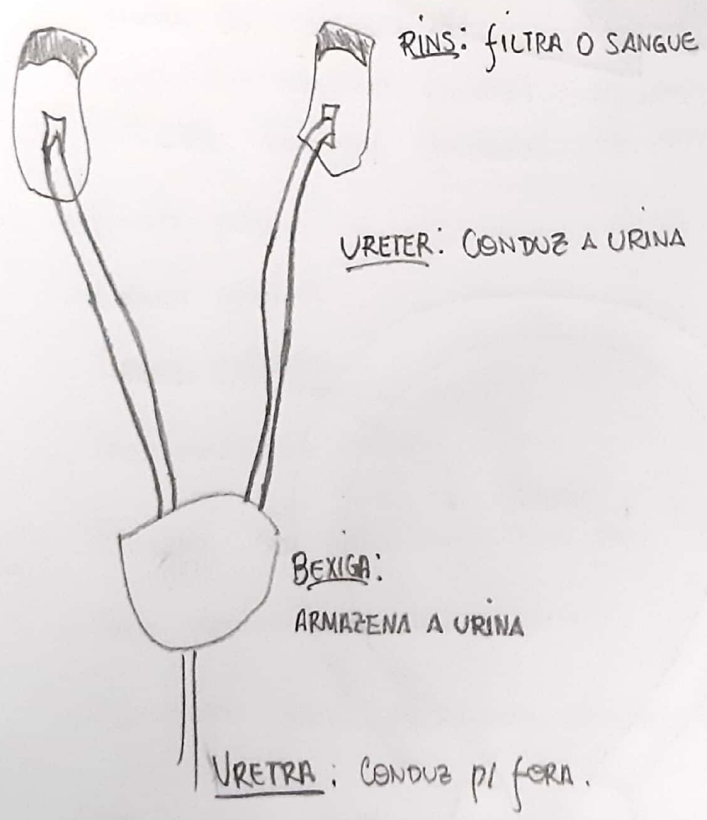 RINS: fILTRA O SANGUE
URETER: CONDUZ A URINA
BEXIGA:
ARMAZENA A URINA
URETRA: CONDUZ p/ fORA.